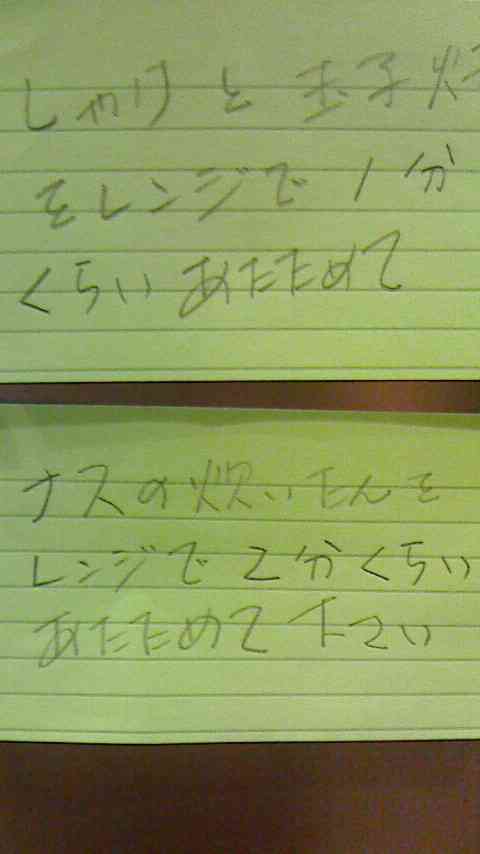 しゃけと玉子焼
をレンジで1分
くらいあたためて
ナスの炊いたんを
レンジで2分くらい
あたためて下さい